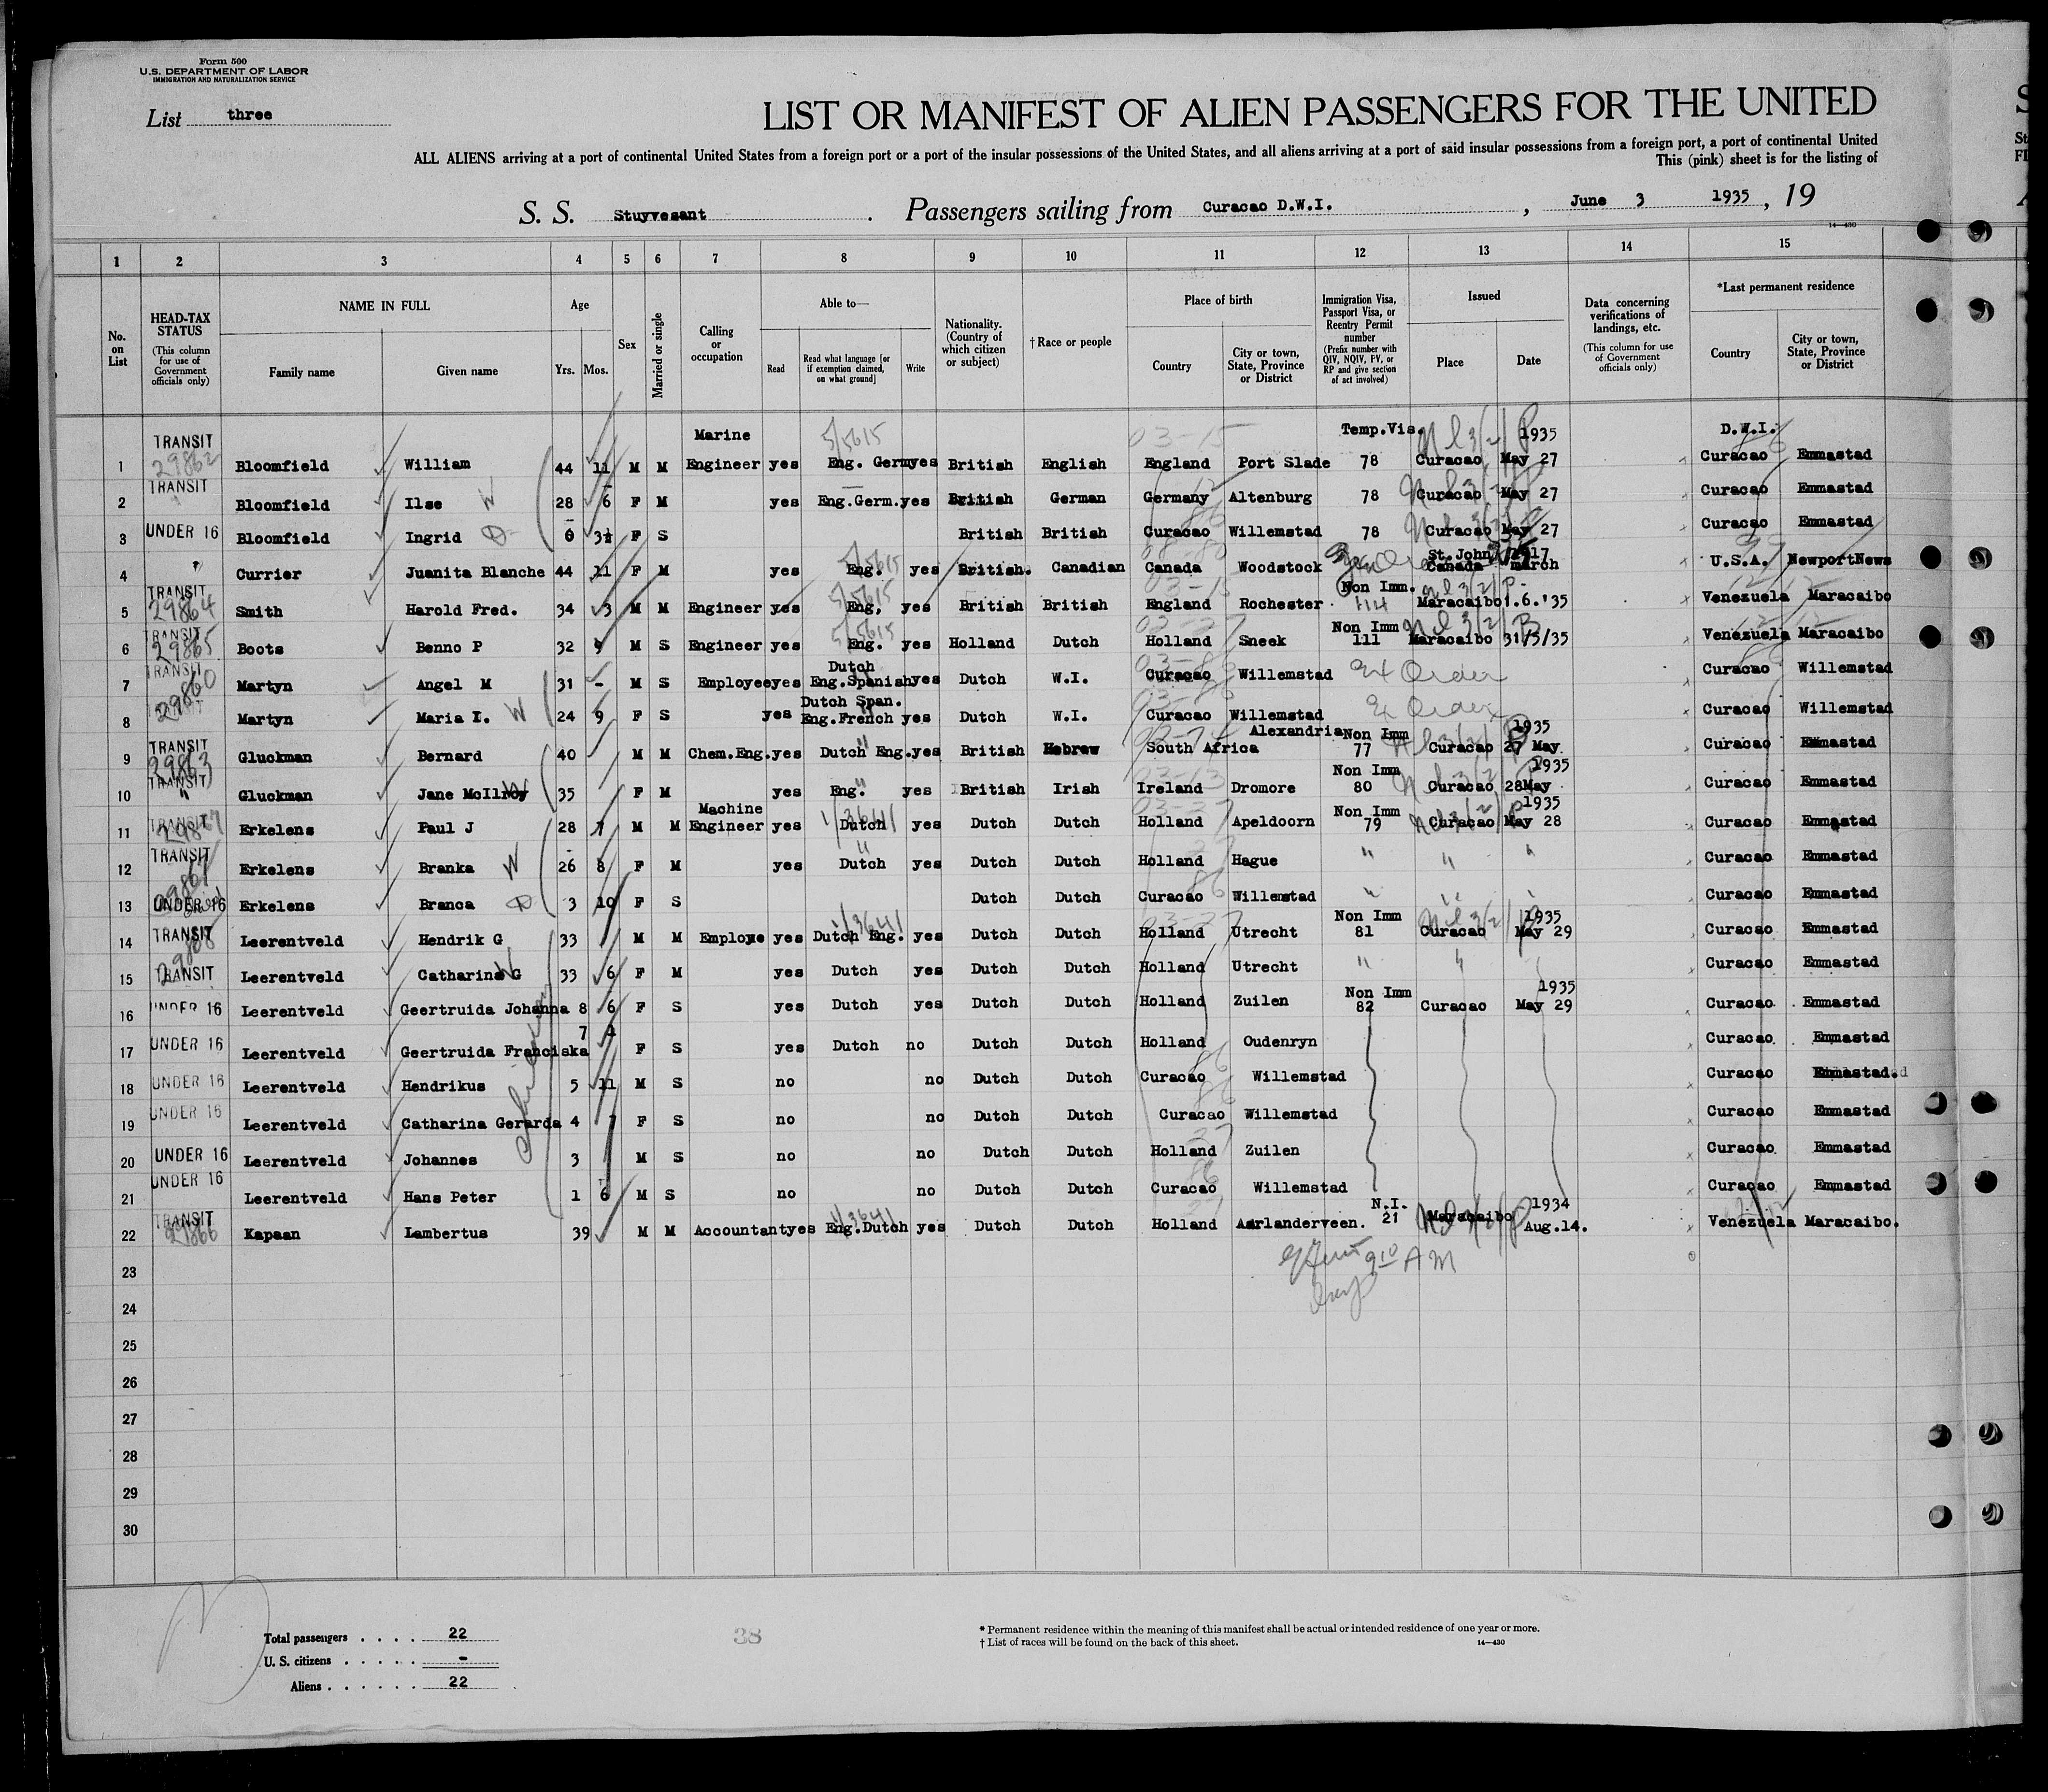 Form 500
U.S. DEPARTMENT OF LABOR
IMMIGRATION AND NATURALIZATION SERVICE
List three
LIST OR MANIFEST OF ALIEN PASSENGERS FOR THE UNITED
ALL ALIENS arriving at a port of continental United States from a foreign port or a port of the insular possessions of the United States, and all aliens arriving at a port of said insular possessions from a foreign port, a port of continental United
This (pink) sheet is for the listing of
S. S. Stuyvesant. Passengers sailing from Curacao D.W.I., June 3 1935, 19
14—430
1 2 3 4 5 6 7 8 9 10 11 12 13 14 15
No. on List
HEAD-TAX STATUS (This column for use of Government officials only)
NAME IN FULL
Family name Given name
Age Yrs. Mos.
Sex
Married or single
Calling or occupation
Able to—
Read Read what language [or if exemption claimed, on what ground] Write
Nationality. (Country of which citizen or subject)
†Race or people
Place of birth
Country City or town, State, Province or District
Immigration Visa, Passport Visa, or Reentry Permit number (Prefix number with QIV, NQIV, PV, or RP and give section of act involved)
Issued
Place Date
Data concerning verifications of landings, etc. (This column for use of Government officials only)
*Last permanent residence
Country City or town, State, Province or District
TRANSIT Marine 5/5615 03-15 Temp.Vis. 1935 D.W.I.
1 29862 Bloomfield William 44 11 M M Engineer yes Eng. Germ yes British English England Port Slade 78 Curacao May 27 Curacao Emmastad
2 TRANSIT Bloomfield Ilse W 28 6 F M yes Eng.Germ. yes British German Germany Altenburg 78 Curacao May 27 Curacao Emmastad
3 UNDER 16 Bloomfield Ingrid 0 3½ F S British British Curacao Willemstad 78 Curacao May 27 Curacao Emmastad
St.John 1917
4 " Currier Juanita Blanche 44 11 F M yes Eng. yes British. Canadian Canada Woodstock Canada march U.S.A. NewportNews
TRANSIT 5/5615 03-15 Non Imm.
5 29864 Smith Harold Fred. 34 3 M M Engineer yes Eng, yes British British England Rochester 114 Maracaibo 1.6.'35 Venezuela Maracaibo
TRANSIT 5/5615 Non Imm
6 29865 Boots Benno P 32 9 M S Engineer yes Eng. yes Holland Dutch Holland Sneek 111 Maracaibo 31/5/35 Venezuela Maracaibo
TRANSIT Dutch 03-86
7 29860 Martyn Angel M 31 - M S Employee yes Eng.Spanish yes Dutch W.I. Curacao Willemstad Ex Order Curacao Willemstad
Dutch Span.
8 Martyn Maria I. W 24 9 F S yes Eng.French yes Dutch W.I. Curacao Willemstad Ex Order Curacao Willemstad
TRANSIT Alexandria Non Imm 1935
9 29863 Gluckman Bernard 40 M M Chem.Eng. yes Dutch Eng. yes British Hebrew South Africa 77 Curacao 27 May. Curacao Emmastad
TRANSIT 03-13 Non Imm 1935
10 " Gluckman Jane McIlroy W 35 F M yes Eng. yes British Irish Ireland Dromore 80 Curacao 28May Curacao Emmastad
TRANSIT Machine 03-27 Non Imm 1935
11 Erkelens Paul J 28 7 M M Engineer yes Dutch yes Dutch Dutch Holland Apeldoorn 79 Curacao May 28 Curacao Emmastad
12 TRANSIT Erkelens Branka W 26 8 F M yes Dutch yes Dutch Dutch Holland Hague " " " Curacao Emmastad
13 UNDER 16 Erkelens Branca 3 10 F S Dutch Dutch Curacao Willemstad " " " Curacao Emmastad
1/3641 03-27 Non Imm 1935
14 TRANSIT Leerentveld Hendrik G 33 M M Employe yes Dutch Eng. yes Dutch Dutch Holland Utrecht 81 Curacao May 29 Curacao Emmastad
15 TRANSIT Leerentveld Catharina G W 33 6 F M yes Dutch yes Dutch Dutch Holland Utrecht " " Curacao Emmastad
Non Imm 1935
16 UNDER 16 Leerentveld Geertruida Johanna 8 6 F S yes Dutch yes Dutch Dutch Holland Zuilen 82 Curacao May 29 Curacao. Emmastad
17 UNDER 16 Leerentveld Geertruida Franciska 7 1 F S yes Dutch no Dutch Dutch Holland Oudenryn Curacao. Emmastad
18 UNDER 16 Leerentveld Hendrikus 5 11 M S no no Dutch Dutch Curacao Willemstad Curacao Emmastad.
19 UNDER 16 Leerentveld Catharina Gerarda 4 7 F S no no Dutch Dutch Curacao Willemstad Curacao Emmastad
20 UNDER 16 Leerentveld Johannes 3 M S no no Dutch Dutch Holland Zuilen Curacao. Emmastad
21 UNDER 16 Leerentveld Hans Peter 1 6 M S no no Dutch Dutch Curacao Willemstad Curacao Emmastad
TRANSIT 1/3641 N.I. 1934
22 29866 Kapaan Lambertus 39 M M Accountant yes Eng.Dutch yes Dutch Dutch Holland Aarlanderveen. 21 Maracaibo Aug.14. Venezuela Maracaibo.
23 9 10 AM
24
25
26
27
28
29
30
Total passengers . . . . 22
U. S. citizens . . . . . -
Aliens . . . . . . 22
38
* Permanent residence within the meaning of this manifest shall be actual or intended residence of one year or more.
† List of races will be found on the back of this sheet. 14—430